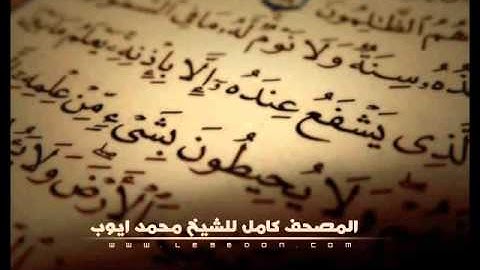 هُمُ الظَّـٰلِمُونَ
ذُهُۥ سِنَةٌ وَلَا نَوْمٌ لَّهُۥ مَا فِى السَّمَـٰ
لَّذِى يَشْفَعُ عِندَهُۥٓ إِلَّا بِإِذْنِهِۦ يَعْلَمُ مَا بَيْ
وَلَا يُحِيطُونَ بِشَىْءٍ مِّنْ عِلْمِهِۦٓ
الْأَرْضَ وَلَا
المصحف كامل للشيخ محمد ايوب
www.lesboon.com